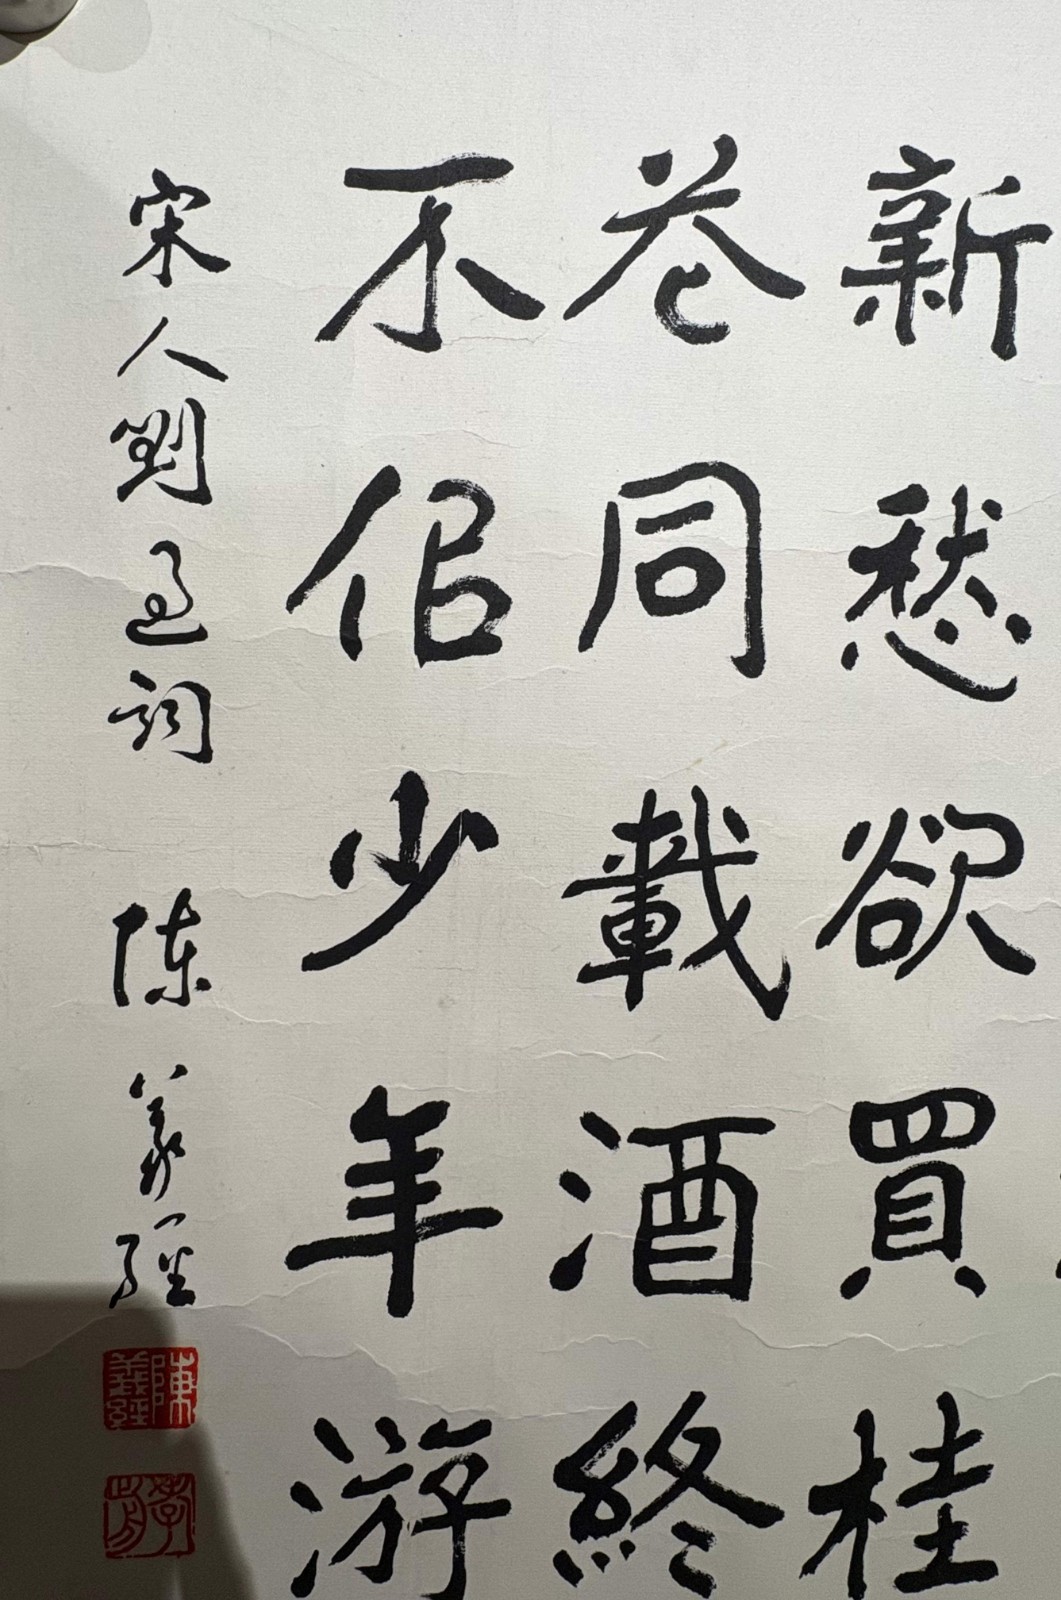 新愁欲買桂
花同載酒終
不侣少年游
宋人劉過詞 陳義經
陳義經